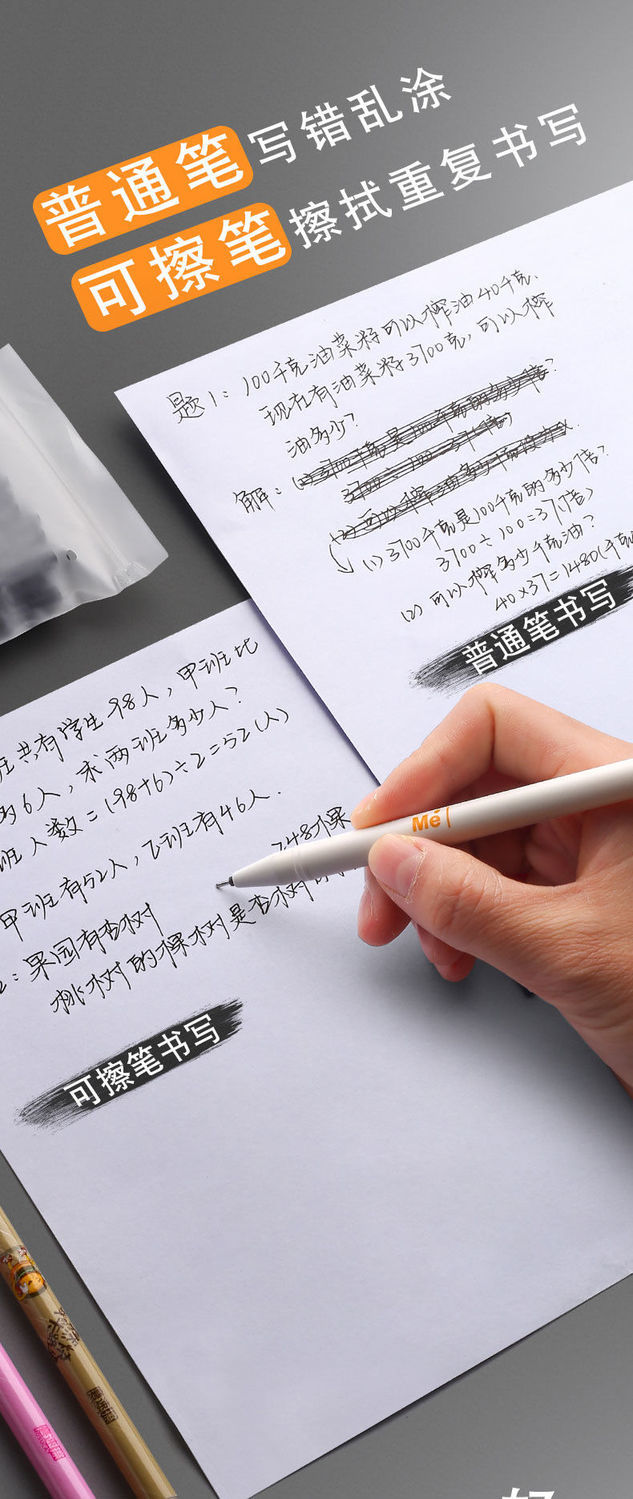 普通笔写错乱涂
可擦笔擦拭重复书写
题1：100千克油菜籽可以榨油40千克，
现在有油菜籽3700克，可以榨
油多少？
解：
(1) 3700千克是100千克的多少倍？
3700÷100=37(倍)
(2) 可以榨多少千克油？
40×37=1480(千克
普通笔书写
班共有学生98人，甲班比
多6人，求两班多少人？
班人数=(98+6)÷2=52(人)
甲班有52人，乙班有46人．
2：果园有杏树 748棵
桃树的棵树是杏树的
可擦笔书写
Me